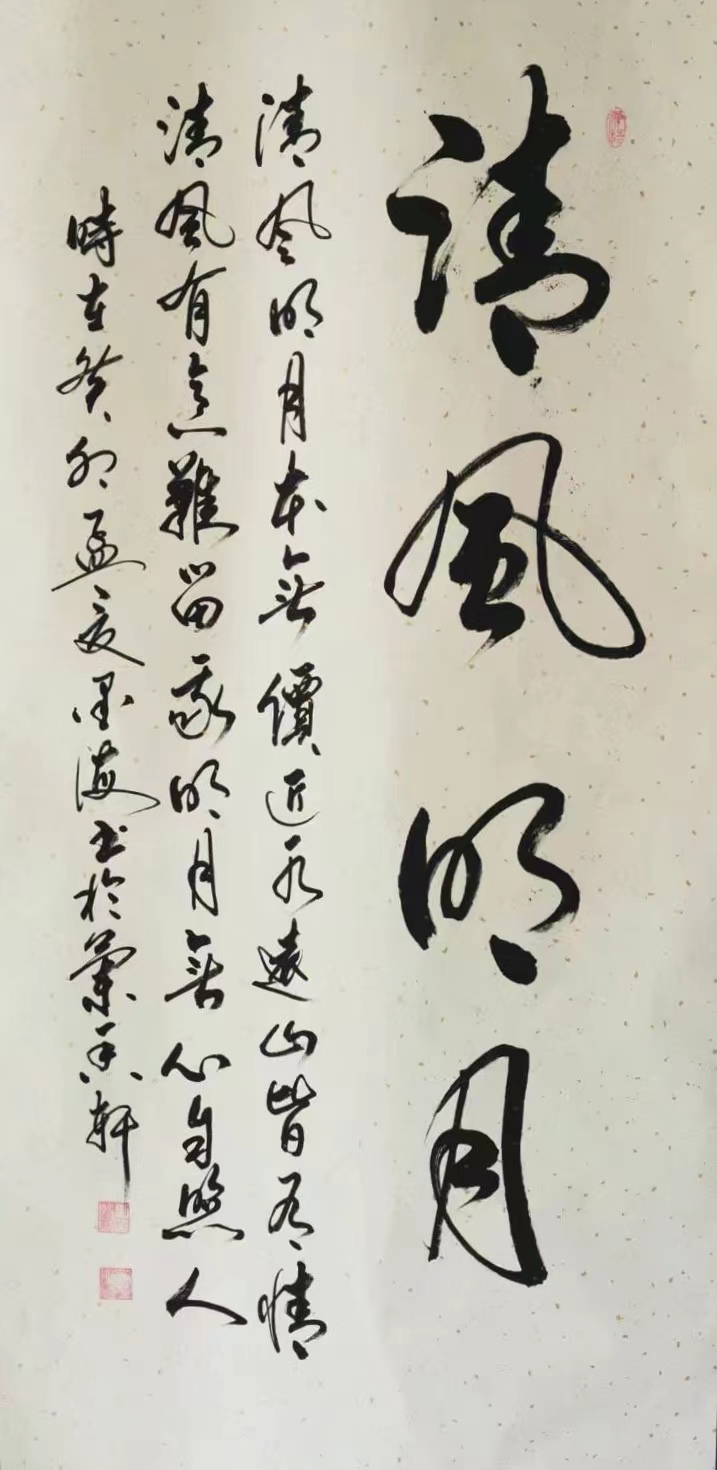 清風明月
清風明月本無價近水遠山皆有情
清風有意難留我明月無心自照人
時在癸卯孟夏墨海書於蘭香軒